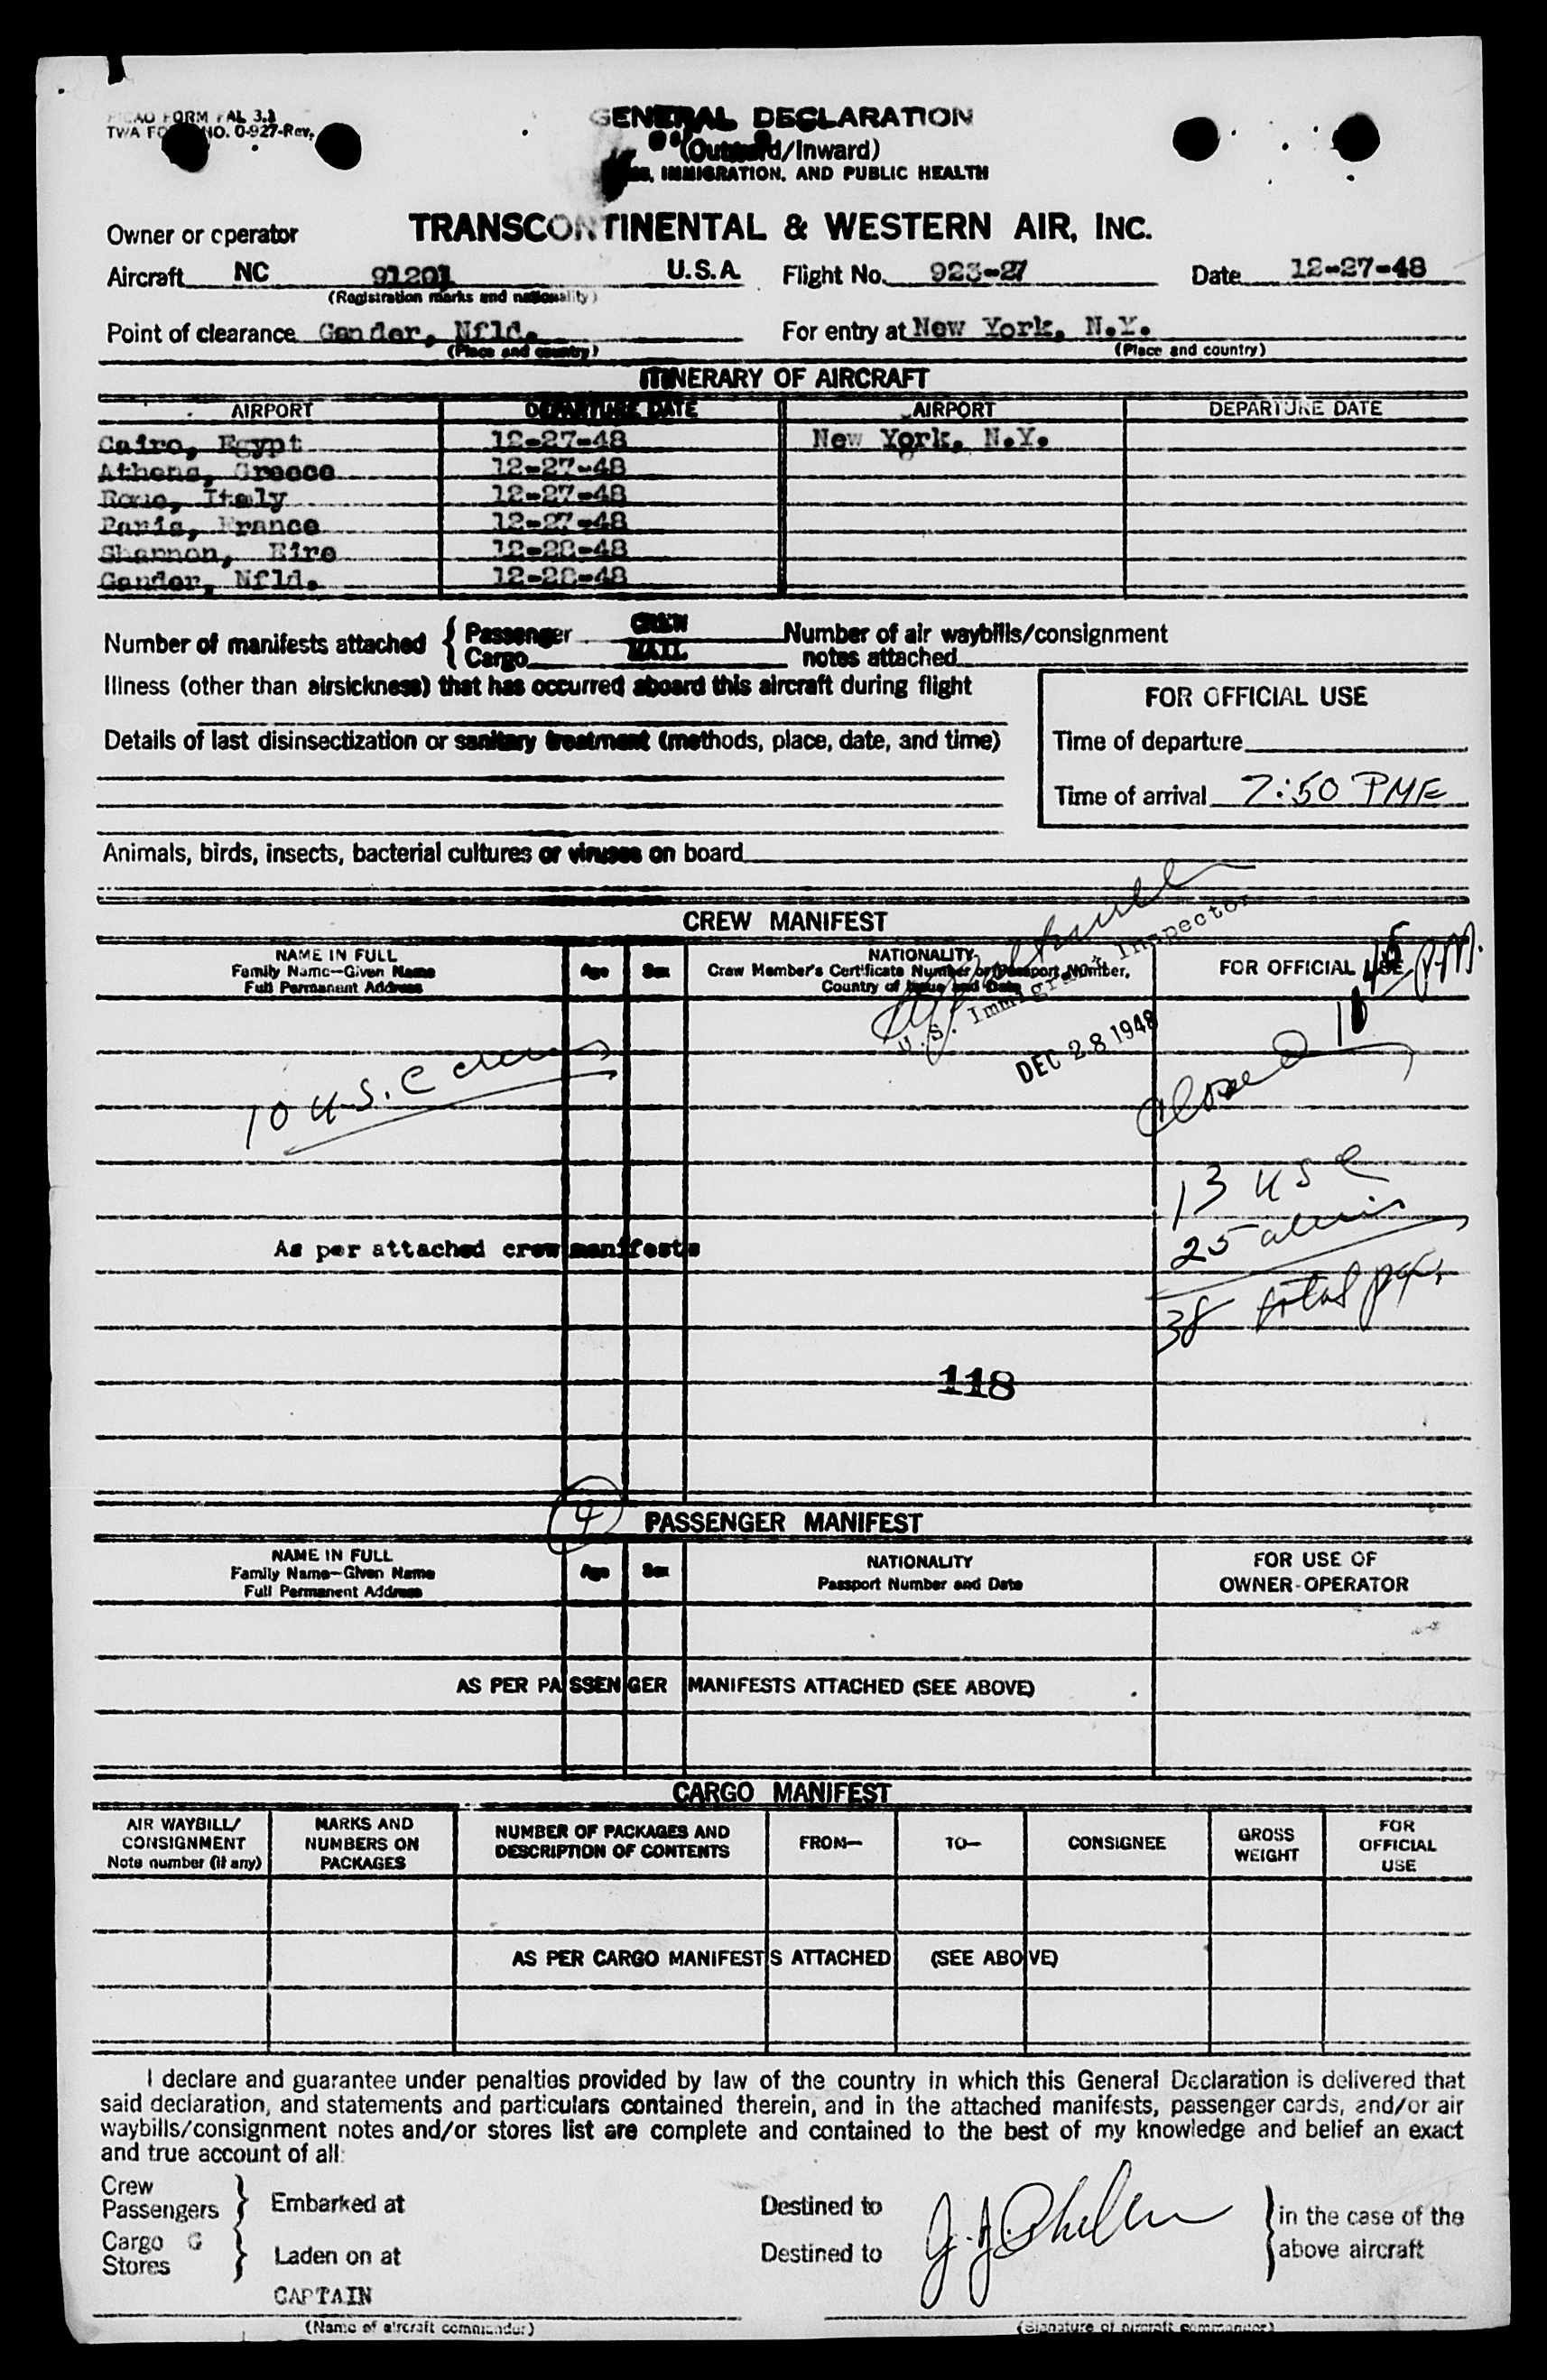 FORM FAL 3.1
TWA FO NO. 0-927-Rev.
GENERAL DECLARATION
(Outward/Inward)
IMMIGRATION, AND PUBLIC HEALTH
Owner or operator TRANSCONTINENTAL & WESTERN AIR, INC.
Aircraft NC 91201 U.S.A. Flight No. 923-27 Date 12-27-48
(Registration marks and nationality)
Point of clearance Gander, Nfld. For entry at New York, N.Y.
(Place and country) (Place and country)
ITINERARY OF AIRCRAFT
AIRPORT DEPARTURE DATE AIRPORT DEPARTURE DATE
Cairo, Egypt 12-27-48 New York, N.Y.
Athens, Greece 12-27-48
Rome, Italy 12-27-48
Paris, France 12-27-48
Shannon, Eire 12-28-48
Gander, Nfld. 12-28-48
Number of manifests attached { Passenger CREW Number of air waybills/consignment
Cargo MAIL notes attached
Illness (other than airsickness) that has occurred aboard this aircraft during flight
FOR OFFICIAL USE
Details of last disinsectization or sanitary treatment (methods, place, date, and time)
Time of departure
Time of arrival 7:50 PME
Animals, birds, insects, bacterial cultures or viruses on board
CREW MANIFEST
NAME IN FULL
Family Name—Given Name
Full Permanent Address
Age Sex
NATIONALITY
Crew Member's Certificate Number or Passport Number,
Country of Issue and Date
FOR OFFICIAL USE
U.S. Immigrant Inspector
DEC 28 1948
Closed 10 45 P.M.
10 U.S.C crew
13 USC
25 aliens
38 total psgr
As per attached crew manifests
118
4
PASSENGER MANIFEST
NAME IN FULL
Family Name—Given Name
Full Permanent Address
Age Sex
NATIONALITY
Passport Number and Date
FOR USE OF
OWNER-OPERATOR
AS PER PASSENGER MANIFESTS ATTACHED (SEE ABOVE)
CARGO MANIFEST
AIR WAYBILL/
CONSIGNMENT
Note number (if any)
MARKS AND
NUMBERS ON
PACKAGES
NUMBER OF PACKAGES AND
DESCRIPTION OF CONTENTS
FROM—
TO—
CONSIGNEE
GROSS
WEIGHT
FOR
OFFICIAL
USE
AS PER CARGO MANIFESTS ATTACHED (SEE ABOVE)
I declare and guarantee under penalties provided by law of the country in which this General Declaration is delivered that
said declaration, and statements and particulars contained therein, and in the attached manifests, passenger cards, and/or air
waybills/consignment notes and/or stores list are complete and contained to the best of my knowledge and belief an exact
and true account of all:
Crew
Passengers } Embarked at Destined to
Cargo
Stores } Laden on at Destined to
in the case of the
above aircraft
CAPTAIN
(Name of aircraft commander) (Signature of aircraft commander)